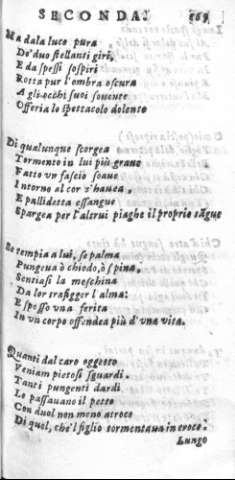 SECONDA. 169
Ma dala luce pura
De' duo stellanti giri,
E da spessi sospiri
Rotta pur l'ombra oscura
A gli occhi suoi souente
Offeria lo spettacolo dolente
Di qualunque scorgea
Tormento in lui più graue
Fatto vn fascio soaue
Intorno al cor s'hauea.
E pallidetta essangue
Spargea per l'altrui piaghe il proprio sãgue
Se tempia a lui, se palma
Pungeua ò chiodo, ò spina,
Sentiasi la meschina
Da lor trafigger l'alma:
E spesso vna ferita
In vn corpo offendea più d'vna vita.
Quanti dal caro oggetto
Veniam pietosi sguardi.
Tanti pungenti dardi
Le passauano il petto
Con duol non meno atroce
Di quel, che'l figlio tormentaua in croce.
Lungo